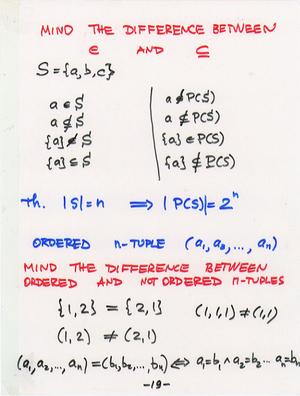 MIND THE DIFFERENCE BETWEEN
∈ AND ⊆
S = {a,b,c}
a ∈ S
a ⊈ S
{a} ∉ S
{a} ⊆ S
a ∉ P(S)
a ⊈ P(S)
{a} ∈ P(S)
{a} ⊈ P(S)
Th. |S| = n ⟹ |P(S)| = 2ⁿ
ORDERED n-TUPLE (a₁, a₂, ..., aₙ)
MIND THE DIFFERENCE BETWEEN
ORDERED AND NOT ORDERED n-TUPLES
{1,2} = {2,1} (1,1,1) ≠ (1,1)
(1,2) ≠ (2,1)
(a₁, a₂, ..., aₙ) = (b₁, b₂, ..., bₙ) ⟺ a₁=b₁ ∧ a₂=b₂ ... aₙ=bₙ
-19-